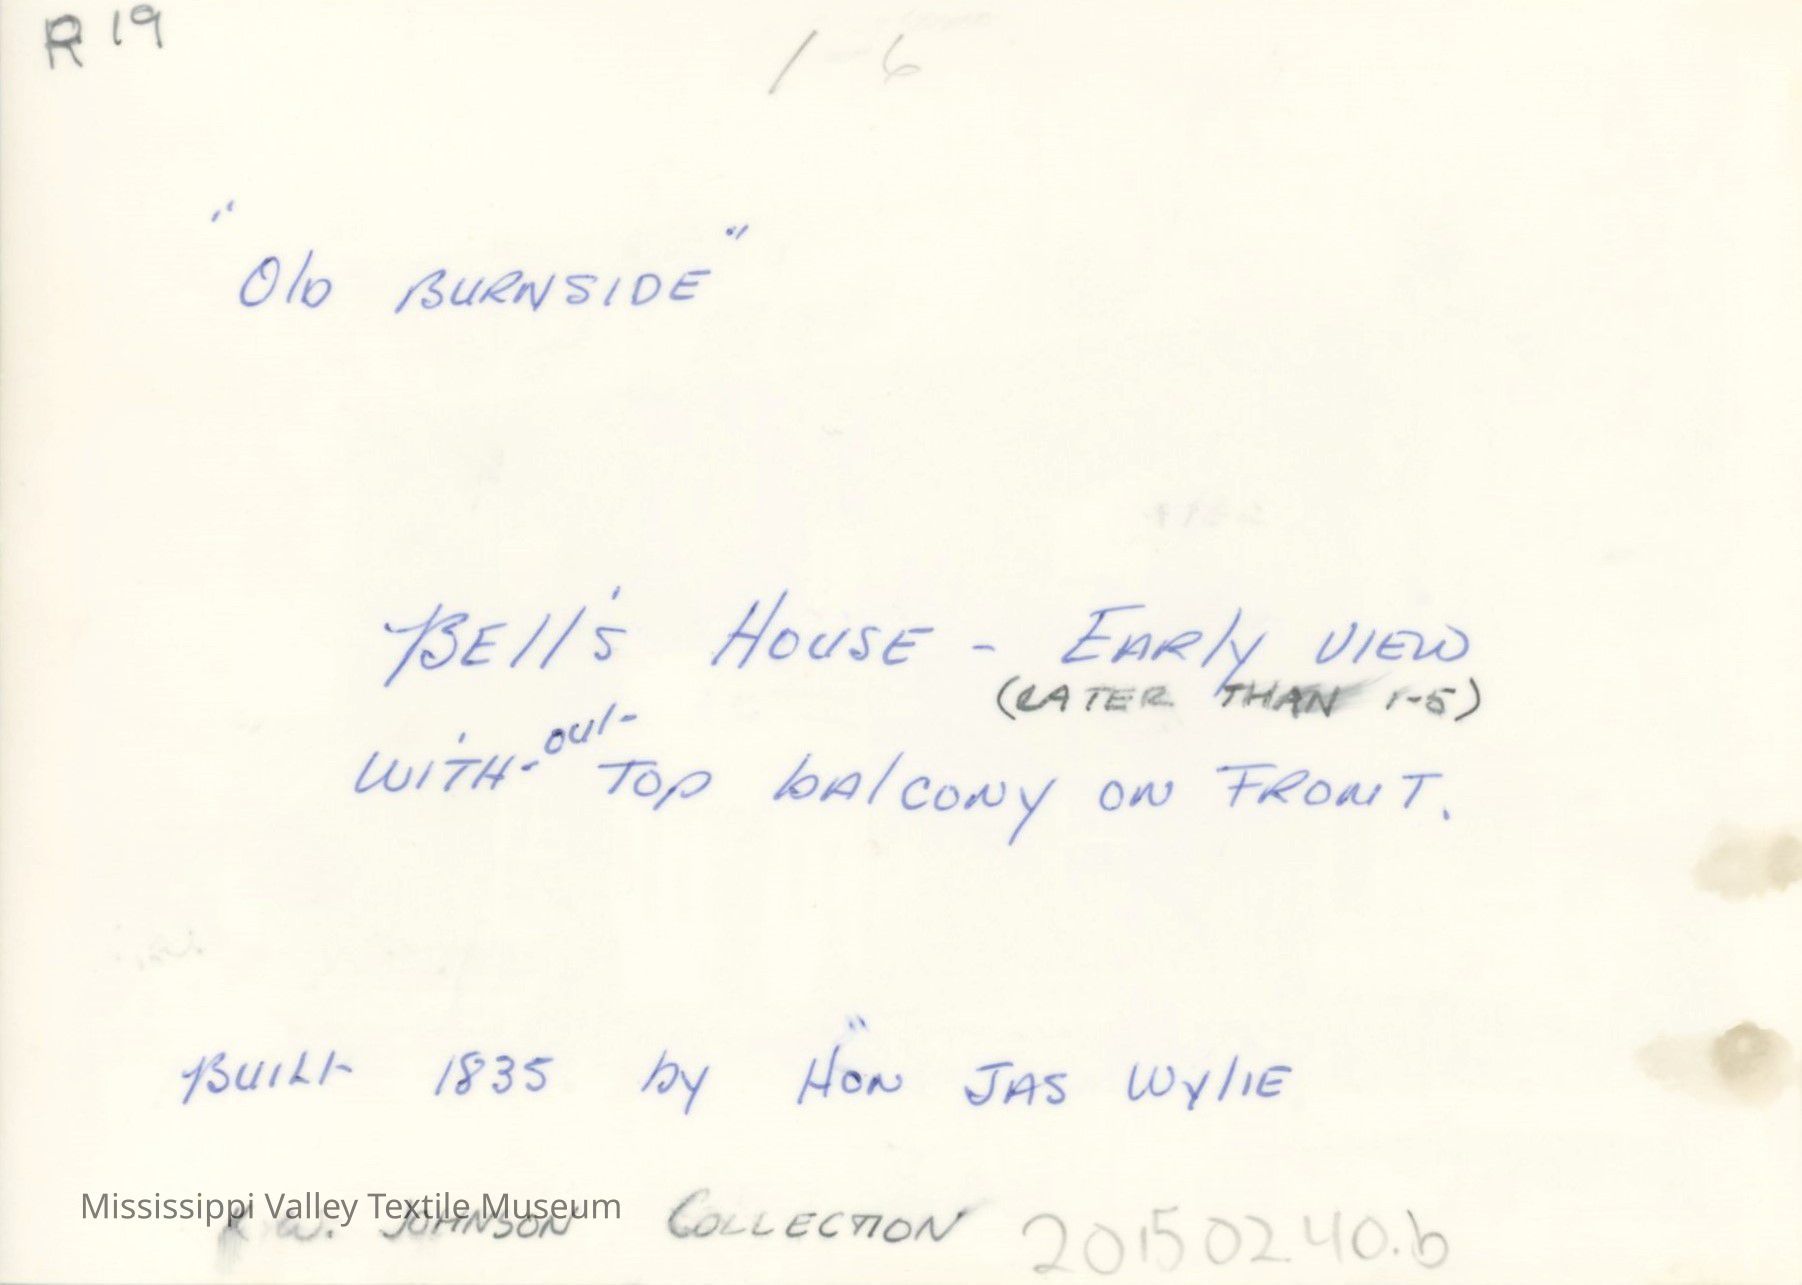 R 19
1-6
"Old BURNSIDE"
BEll's HOUSE - EARly VIEW
(LATER THAN 1-5)
WITH-out TOP bAlCONy ON FRONT.
BUILt 1835 by HON JAS WylIE
Mississippi Valley Textile Museum
R.W. JOHNSON COLLECTION 20150240.b